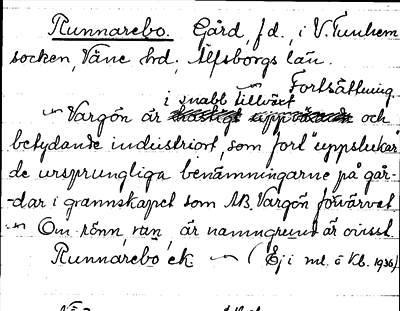 Runnarebo. Gård, f.d., i V. Tunhem
socken, Väne hd., Älfsborgs län.
Fortsättning.
i snabb tillväxt
Vargön är och
betydande industriort, som fort "uppslukar"
de ursprungliga benämningarne på går-
-dar i grannskapet som AB. Vargön förvärvat.
Om rönn, run, är namngrund är ovisst.
Runnarebo ek (Ej i ml. ö Kb. 1936)